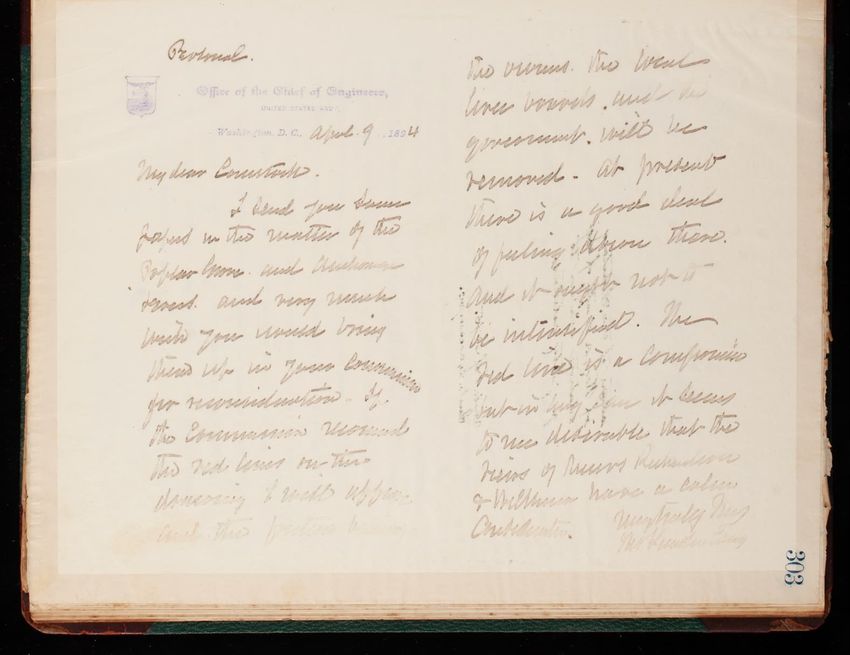 Personal.
Office of the Chief of Engineers,
UNITED STATES ARMY,
Washington, D. C., April 9, 1894
My dear Comstock.
I send you some
papers in the matter of the
Poplar Grove and
and very much
wish you would bring
them up in your Commission
for reconsideration - If
the Commission
the red lines on the
drawing I will
and the
the views. the local
levee boards. and the
government. will be
removed - At present
there is a good deal
of feeling down there.
and it ought not to
be intensified. The
red line is a compromise
but in any case it seems
to me desirable that the
views of Messrs Richardson
& have a calm
Consideration.
Very truly Yours
303